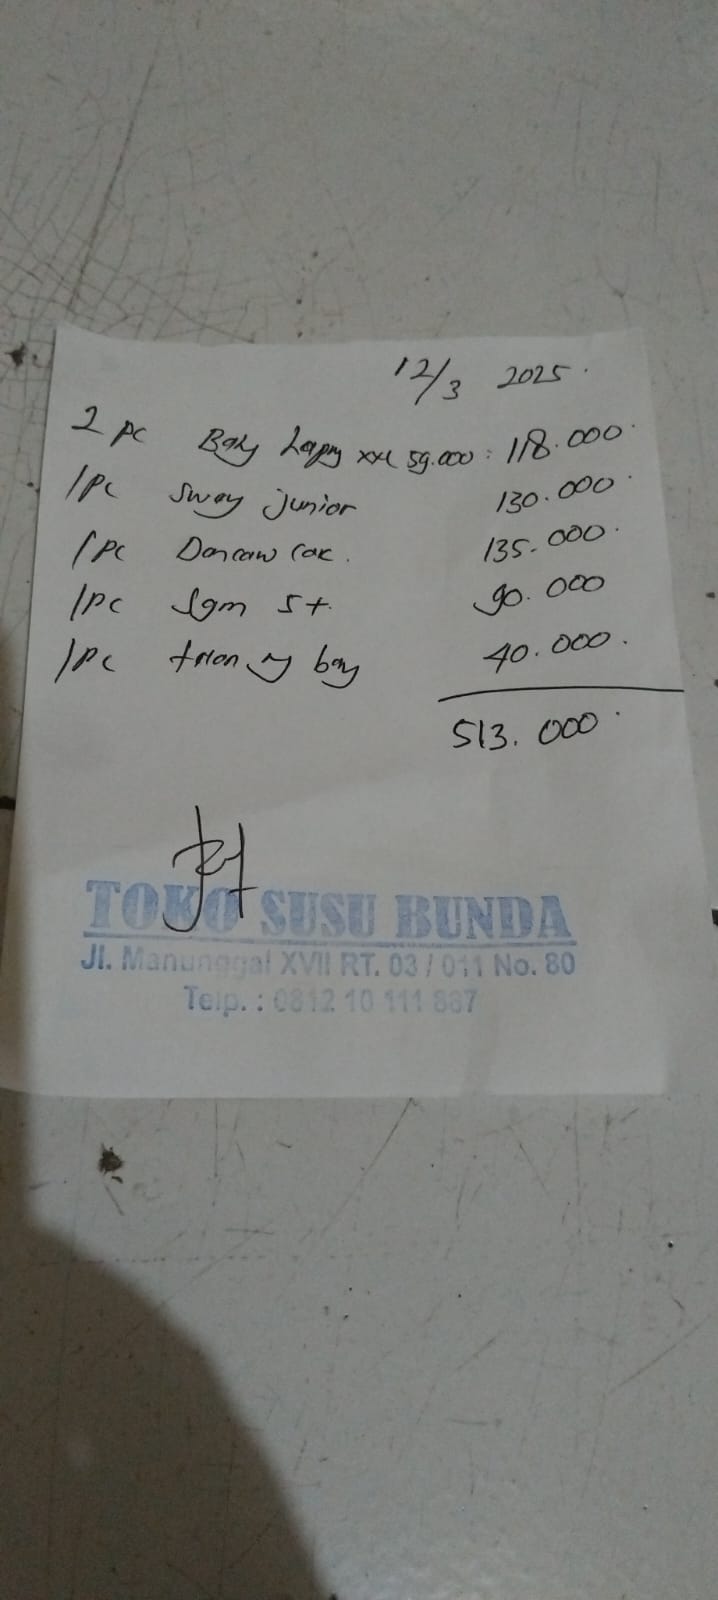 12/3 2025.
2 pc Baby Happy XXL 59.000 : 118.000
1 pc junior 130.000
1 pc Dancow Cok. 135.000
1 pc Sgm 5+ 90.000
1 pc 40.000
513.000
TOKO SUSU BUNDA
Jl. Manunggal XVII RT. 03 / 011 No. 80
Telp. : 0812 10 111 887